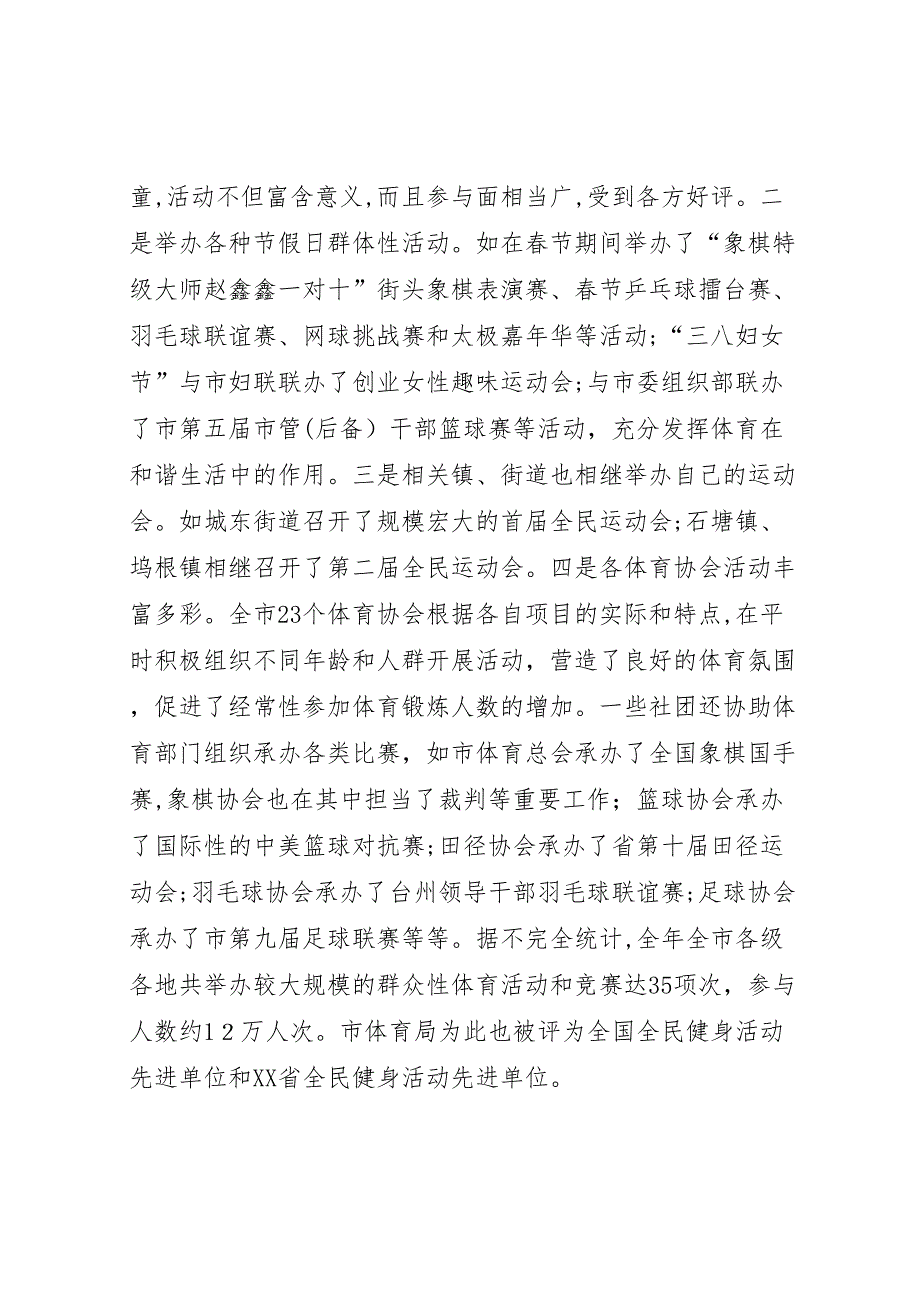 童,活动不但富含意义,而且参与面相当广,受到各方好评。二
是举办各种节假日群体性活动。如在春节期间举办了“象棋特
级大师赵鑫鑫一对十”街头象棋表演赛、春节乒乓球擂台赛、
羽毛球联谊赛、网球挑战赛和太极嘉年华等活动;“三八妇女
节”与市妇联联办了创业女性趣味运动会;与市委组织部联办
了市第五届市管(后备）干部篮球赛等活动，充分发挥体育在
和谐生活中的作用。三是相关镇、街道也相继举办自己的运动
会。如城东街道召开了规模宏大的首届全民运动会;石塘镇、
坞根镇相继召开了第二届全民运动会。四是各体育协会活动丰
富多彩。全市23个体育协会根据各自项目的实际和特点,在平
时积极组织不同年龄和人群开展活动，营造了良好的体育氛围
，促进了经常性参加体育锻炼人数的增加。一些社团还协助体
育部门组织承办各类比赛，如市体育总会承办了全国象棋国手
赛,象棋协会也在其中担当了裁判等重要工作；篮球协会承办
了国际性的中美篮球对抗赛;田径协会承办了省第十届田径运
动会;羽毛球协会承办了台州领导干部羽毛球联谊赛;足球协会
承办了市第九届足球联赛等等。据不完全统计,全年全市各级
各地共举办较大规模的群众性体育活动和竞赛达35项次，参与
人数约1２万人次。市体育局为此也被评为全国全民健身活动
先进单位和XX省全民健身活动先进单位。